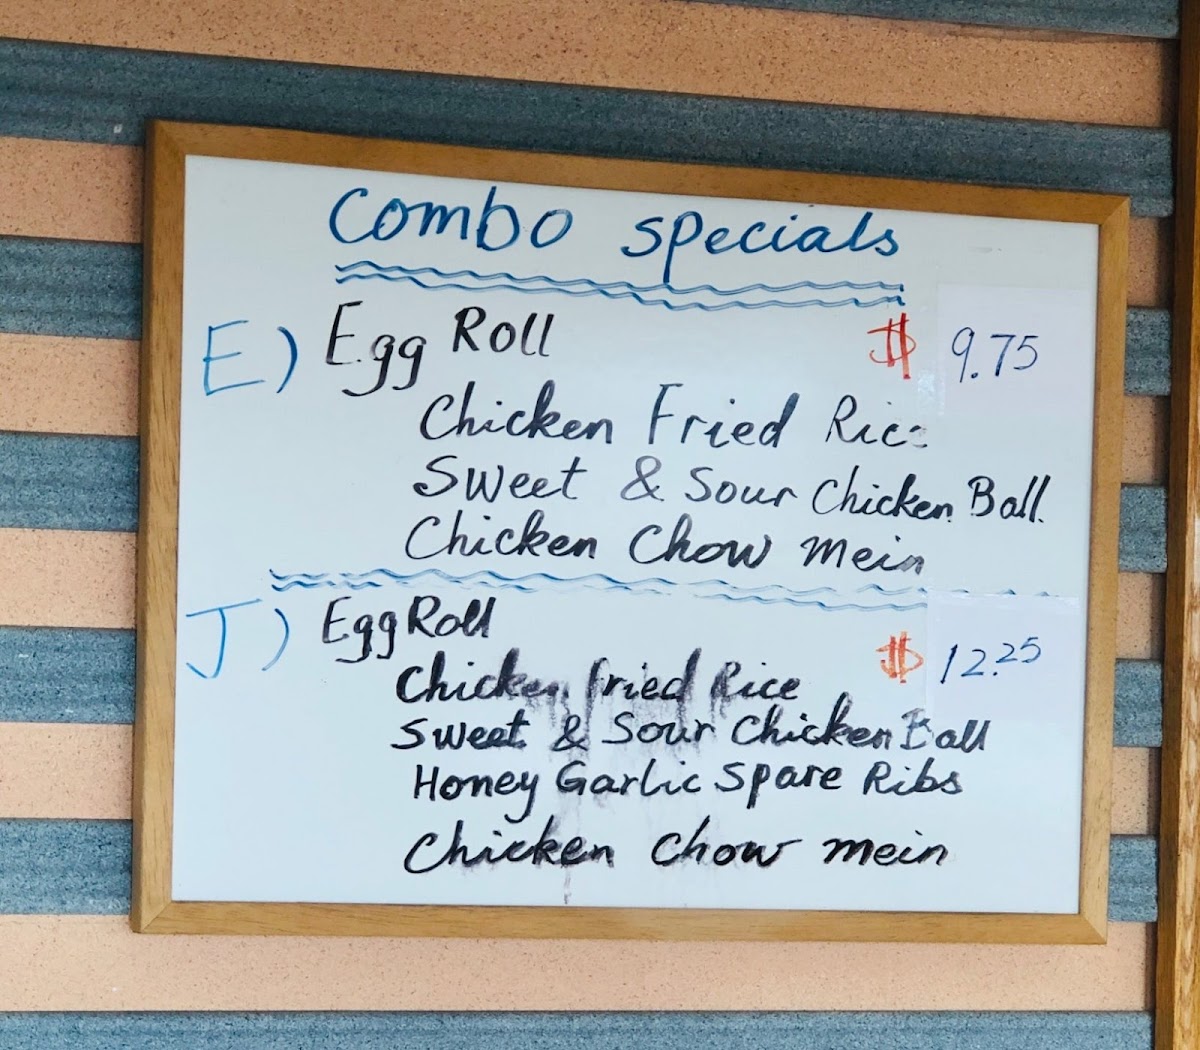 Combo Specials
E) Egg Roll $ 9.75
Chicken Fried Rice
Sweet & Sour Chicken Ball.
Chicken Chow mein
J) Egg Roll $ 12.25
Chicken Fried Rice
Sweet & Sour Chicken Ball
Honey Garlic Spare Ribs
Chicken Chow mein